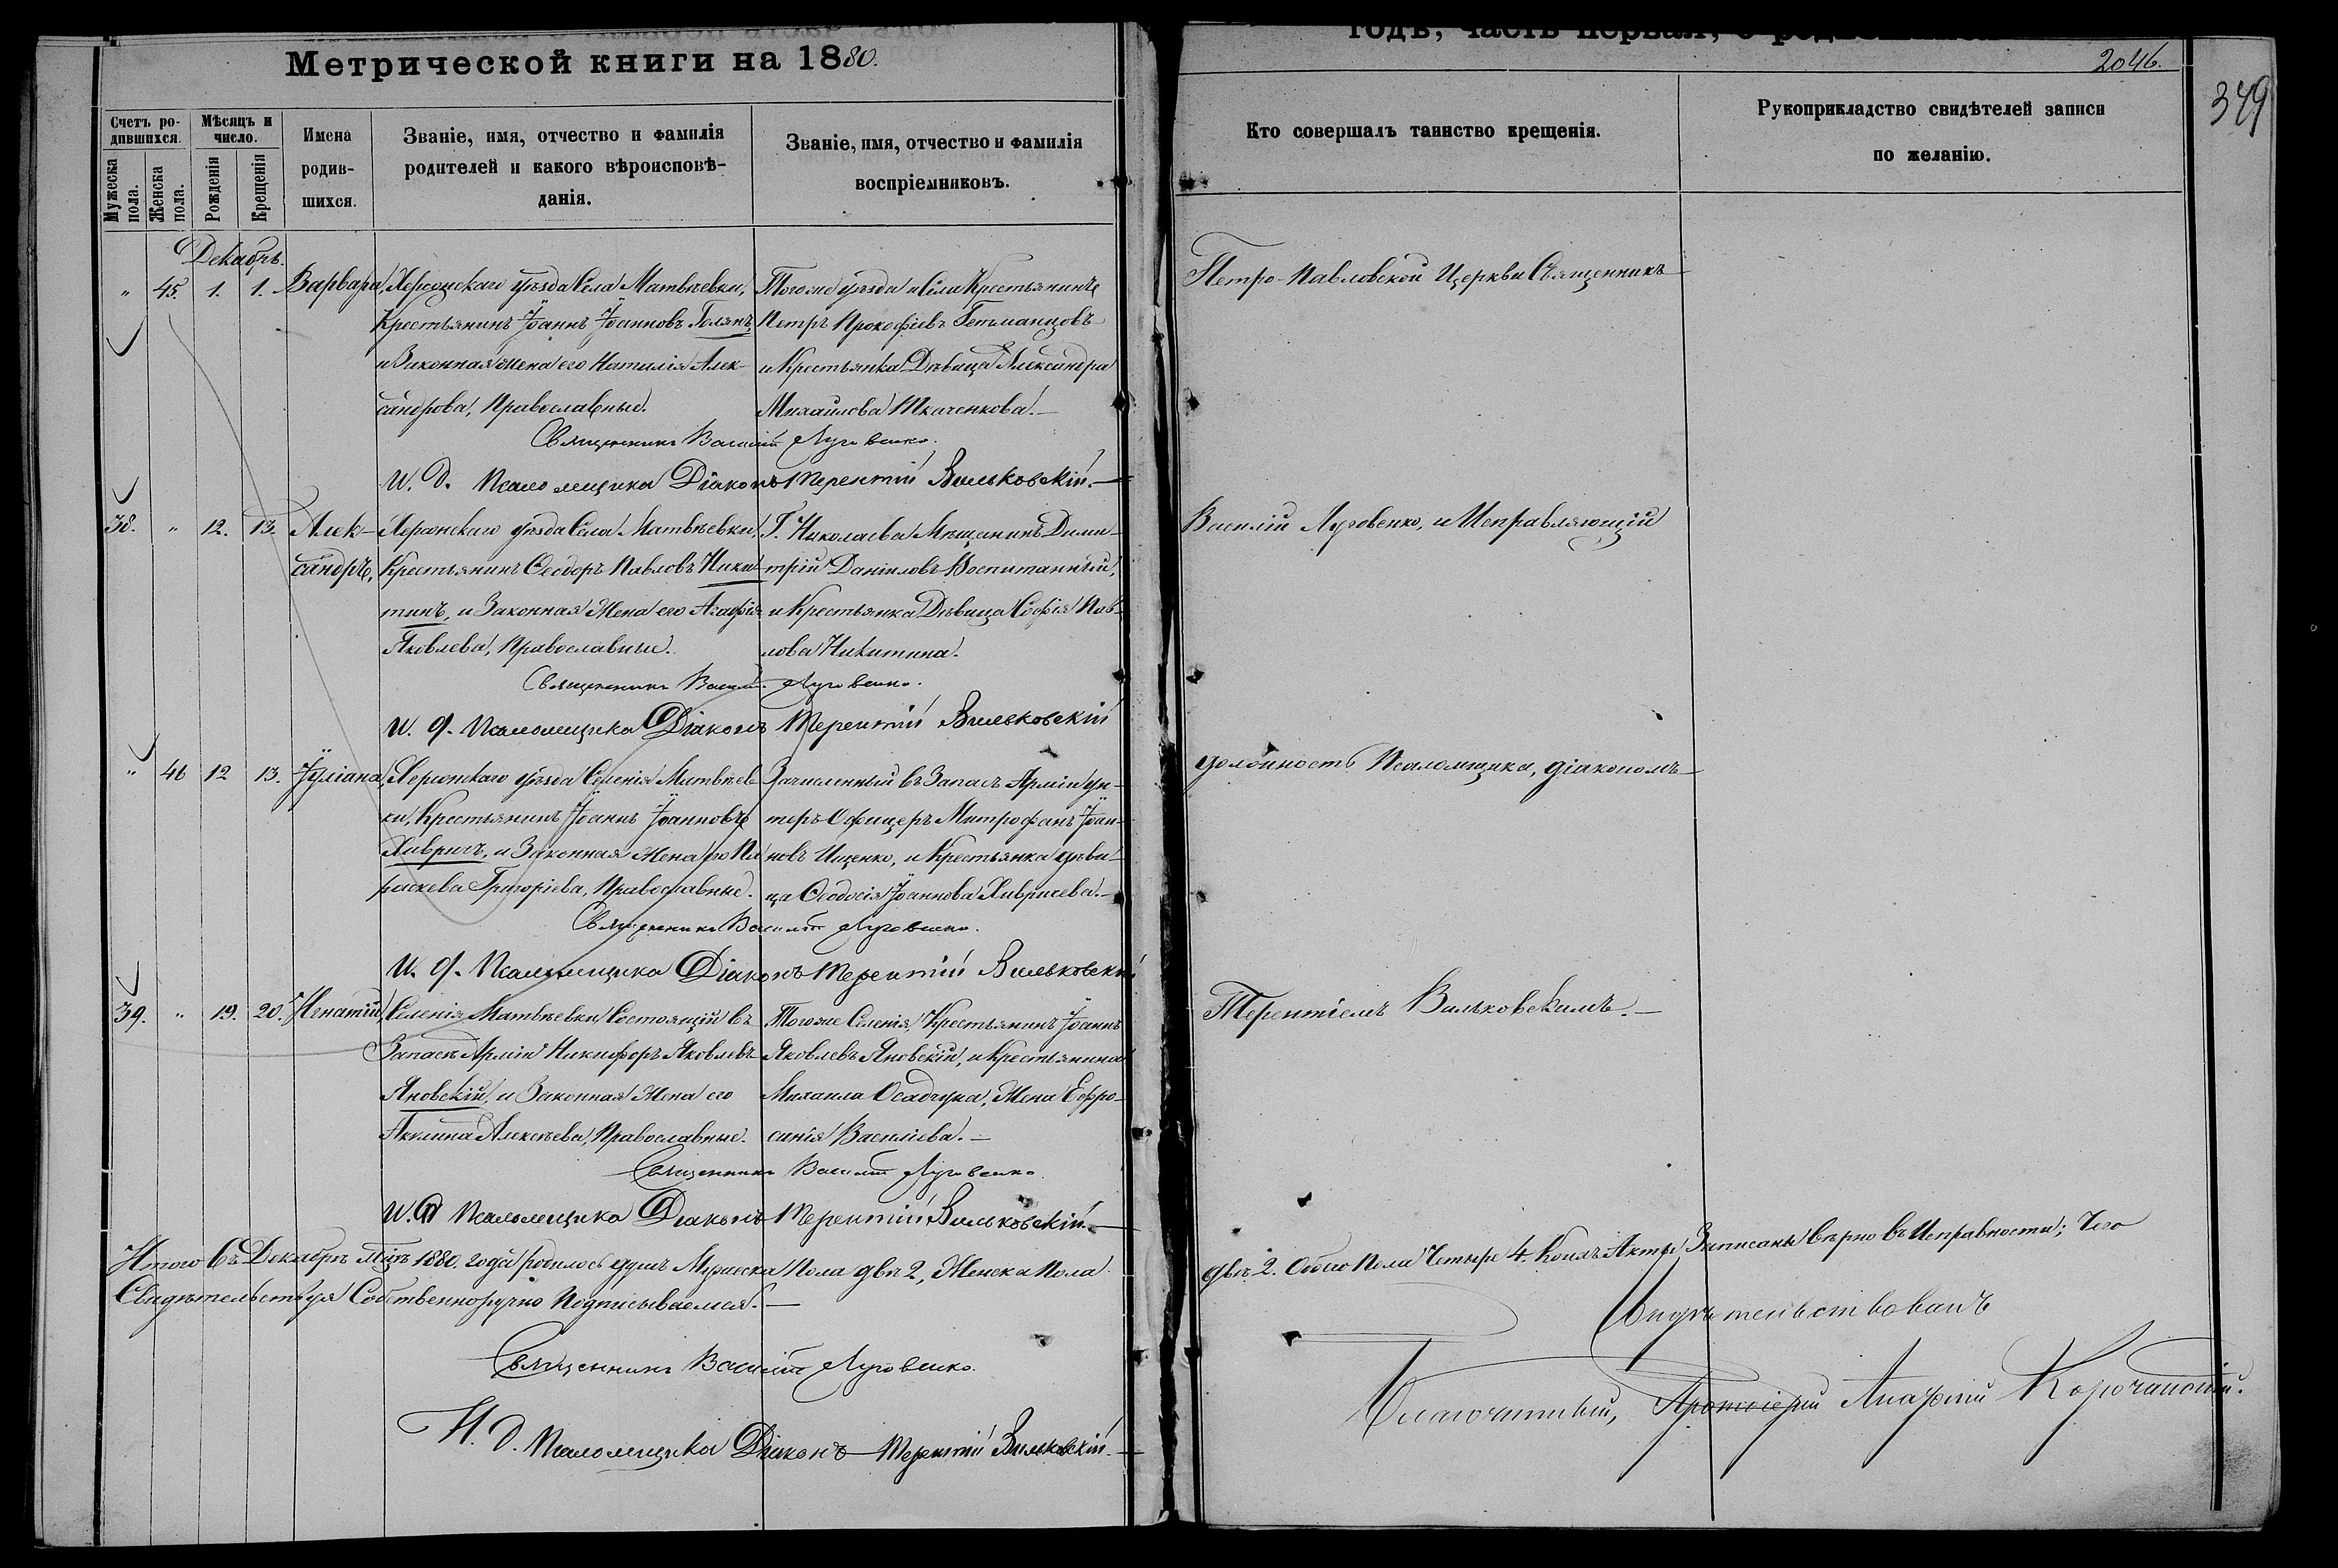 Метрической книги на 1880.
Счетъ ро-
дившихся.
Мѣсяцъ и
число.
Мужеска
пола.
Женска
пола.
Рожденія
Крещенія
Имена
родив-
шихся.
Званіе, имя, отчество и фамилія
родителей и какого вѣроисповѣ-
данія.
Званіе, имя, отчество и фамилія
воспріемниковъ.
Декабрь.
" 45. 1. 1. Варвара,
Херсонскаго уѣзда Села Матвѣевки,
Крестьянинъ Іоаннъ Іоанновъ Голянъ,
и Законная жена его Наталія Алек-
сандрова, Православные.
Тогоже уѣзда и Села Крестьянинъ
Петръ Прокофіевъ Гетманцовъ
и Крестьянка Дѣвица Александра
Михайлова Ткаченкова.
Священникъ Василій Луговенко.
И. д. Псаломщика Діаконъ Терентій Вильковскій.
38. " 12. 13. Алек-
сандръ,
Херсонскаго уѣзда Села Матвѣевки,
Крестьянинъ Ѳеодоръ Павловъ Ники-
тинъ, и Законная Жена его Агафія
Яковлева, Православные.
Г. Николаева Мѣщанинъ Дими-
трій Даниловъ Воспитанный,
и Крестьянка Дѣвица Софія Пав-
лова Никитина.
Священникъ Василій Луговенко.
И. д. Псаломщика Діаконъ Терентій Вильковскій
" 46 12 13. Іуліана,
Херсонскаго уѣзда Селенія Матвѣев-
ки, Крестьянинъ Іоаннъ Іоанновъ
Хивричъ, и Законная Жена его Па-
раскева Григоріева, Православные.
Зачисленный въ Запасъ Арміи Ун-
теръ-Офицеръ Митрофанъ Іоан-
новъ Ищенко, и Крестьянка дѣви-
ца Ѳеодосія Іоаннова Хивричева.
Священникъ Василій Луговенко.
И. д. Псаломщика Діаконъ Терентій Вильковскій
39. " 19. 20. Игнатій,
Селенія Матвѣевки Состоящій въ
Запасѣ Арміи Никифоръ Яковлевъ
Яновскій, и Законная Жена его
Акилина Алексѣева, Православные.
Тогоже Селенія Крестьянинъ Іоаннъ
Яковлевъ Яновскій, и Крестьянина
Михаила Осадчука, Жена Евфро-
синія Василіева.
Священникъ Василій Луговенко.
И. д. Псаломщика Діаконъ Терентій Вильковскій.
Итого въ Декабрѣ м-цѣ 1880. года родилось душъ Мужеска Пола двѣ 2, Женска Пола
Свидѣтельствуя Собственноручно Подписываемся.
Священникъ Василій Луговенко.
И. д. Псаломщика Діаконъ Терентій Вильковскій.
годъ, часть первая, о
2046.
349
Кто совершалъ таинство крещенія.
Рукоприкладство свидѣтелей записи
по желанію.
Петро-Павловской Церкви Священникъ
Василій Луговенко, и Исправляющій
должность Псаломщика, діакономъ
Терентіемъ Вильковскимъ.
двѣ 2. Обоего Пола Четыре 4. Акты Записаны вѣрно въ Исправности; Чего
Свидѣтельствовалъ
Благочинный, Протоіерей Корочанскій.